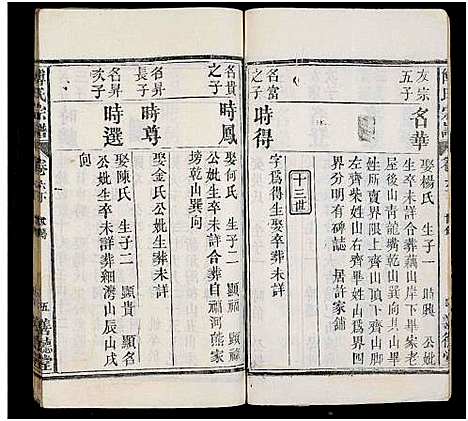 傅氏宗譜
友宗五子
名華
娶楊氏 生子一 時興 公妣
生卒未詳合葬藕山岸下畢家老
屋後山青龍嘴乾山巽向其山畢
姓所賣界限上頂山下齊山脚
左齊柴姓山右齊畢姓山具爲四
界分明有碑誌 居許家鋪
十三世
名富之子
時得
字爲得生娶卒葬未詳
名貴之子
時鳳
娶何氏 生子二 顯福 顯祿
公妣生卒未詳合葬自福河熊家
塝乾山巽向
名昇長子
時尊
娶金氏公妣生葬未詳
名昇次子
時選
娶陳氏 生子二 顯貴 顯榮
公妣生卒未詳葬細灣山辰山戌
向
傅氏宗譜
卷六下
世系
五
善述堂